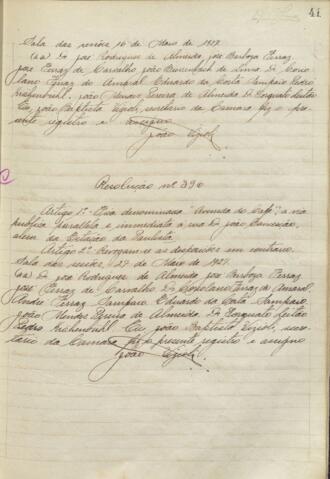 41
Sala das sessões 16 de Maio de 1927.
(aa) Dr José Rodrigues de Almeida, José Barboza Ferraz,
José Ferraz de Carvalho, João de Lima, Dr Corio-
lano Ferraz do Amaral, Eduardo da Costa Sampaio, Pedro
Krähenbühl, João Mendes Pereira de Almeida, Dr Torquato Leitão
Eu, João Baptista Vizioli, secretario da Camara fiz o pre-
sente registro e assigno
João Vizioli
Resolução nº 396
Artigo 1º Fica denominada "Avenida do Café", a via
publica parallela e immediata á rua Dr João Conceição,
alem da Estação da Paulista.
Artigo 2º Revogam-se as disposições em contrario.
Sala das sessões, 27 de Maio de 1927.
(aa) Dr José Rodrigues de Almeida, José Barboza Ferraz
José Ferraz de Carvalho, Dr Coriolano Ferraz do Amaral,
André Ferraz Sampaio, Eduardo da Costa Sampaio,
João Mendes Pereira de Almeida, Dr Torquato Leitão
Pedro Krähenbühl. Eu, João Baptista Vizioli, secre-
tario da Camara fiz o presente registro e assigno
João Vizioli.